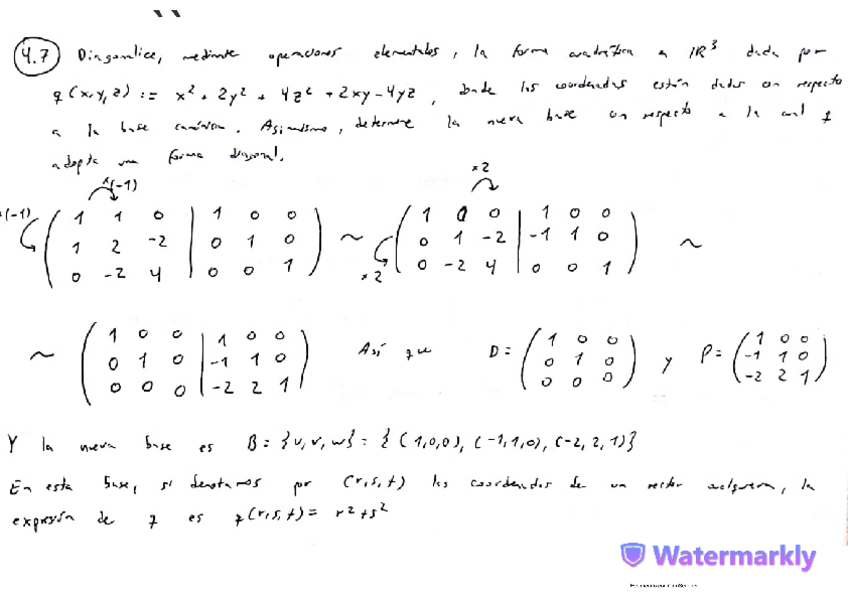 4.7 Diagonalice, mediante operaciones elementales, la forma cuadrática en IR³ dada por
q(x,y,z) := x² + 2y² + 4z² + 2xy - 4yz, donde las coordenadas están dadas con respecto
a la base canónica. Asimismo, determine la nueva base con respecto a la cual q
adopta una forma diagonal.
x(-1) x2
x(-1) ( 1 1 0 | 1 0 0 ) ~ ( 1 0 0 | 1 0 0 ) ~
( 1 2 -2 | 0 1 0 ) ( 0 1 -2 | -1 1 0 )
( 0 -2 4 | 0 0 1 ) x2 ( 0 -2 4 | 0 0 1 )
~ ( 1 0 0 | 1 0 0 ) Así que D = ( 1 0 0 ) y P = ( 1 0 0 )
( 0 1 0 | -1 1 0 ) ( 0 1 0 ) ( -1 1 0 )
( 0 0 0 | -2 2 1 ) ( 0 0 0 ) ( -2 2 1 )
Y la nueva base es B = {u, v, w} = { (1,0,0), (-1,1,0), (-2,2,1)}
En esta base, si denotamos por (r,s,t) las coordenadas de un vector cualquiera, la
expresión de q es q(r,s,t) = r² + s²
Watermarkly